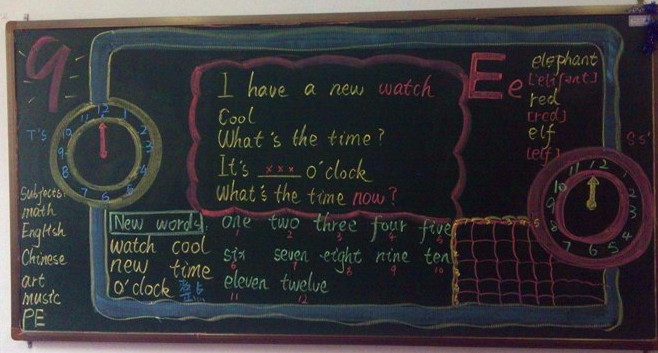 9
T's
12 1 2 3 4 5 6 7 8 9 10 11
Subjects:
math
English
Chinese
art
music
PE
I have a new watch
Cool
What's the time?
It's xxx o'clock
What's the time now?
New words
watch cool
new time
o'clock
one two three four five
1 2 3 4 5
six seven eight nine ten
6 7 8 9 10
eleven twelve
11 12
Ee
elephant
['elifənt]
red
[red]
elf
[elf]
12 1 2 3 4 5 6 7 8 9 10 11